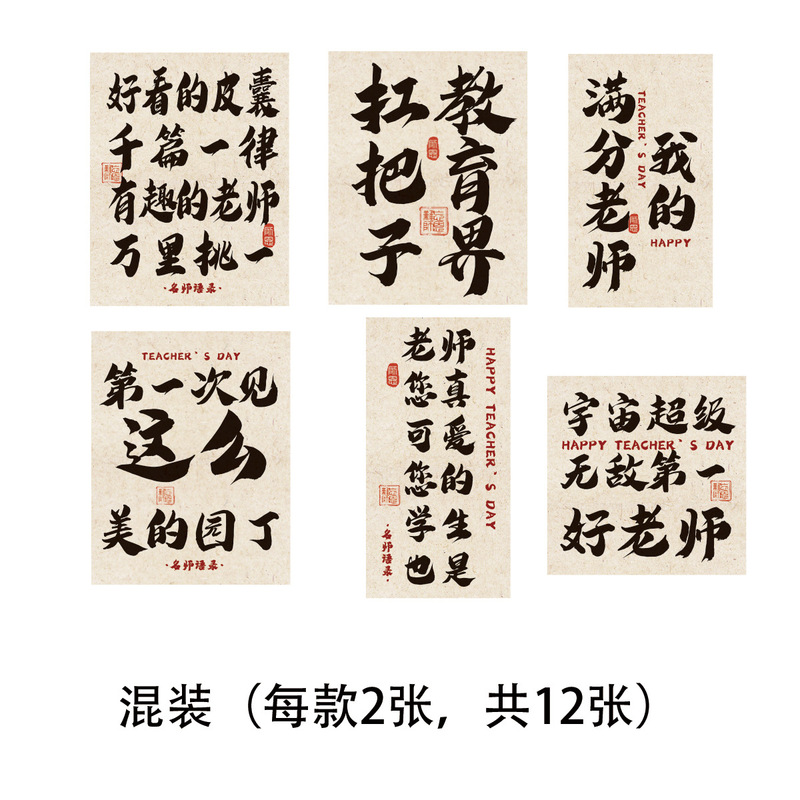 好看的皮囊
千篇一律
有趣的老师
万里挑一
·名师语录·
教育界
扛把子
我的
满分老师
TEACHER'S DAY
HAPPY
TEACHER'S DAY
第一次见
这么
美的园丁
·名师语录·
老师
您真
可爱
您的
学生
也是
HAPPY TEACHER'S DAY
·名师语录·
宇宙超级
HAPPY TEACHER'S DAY
无敌第一
好老师
混装（每款2张，共12张）